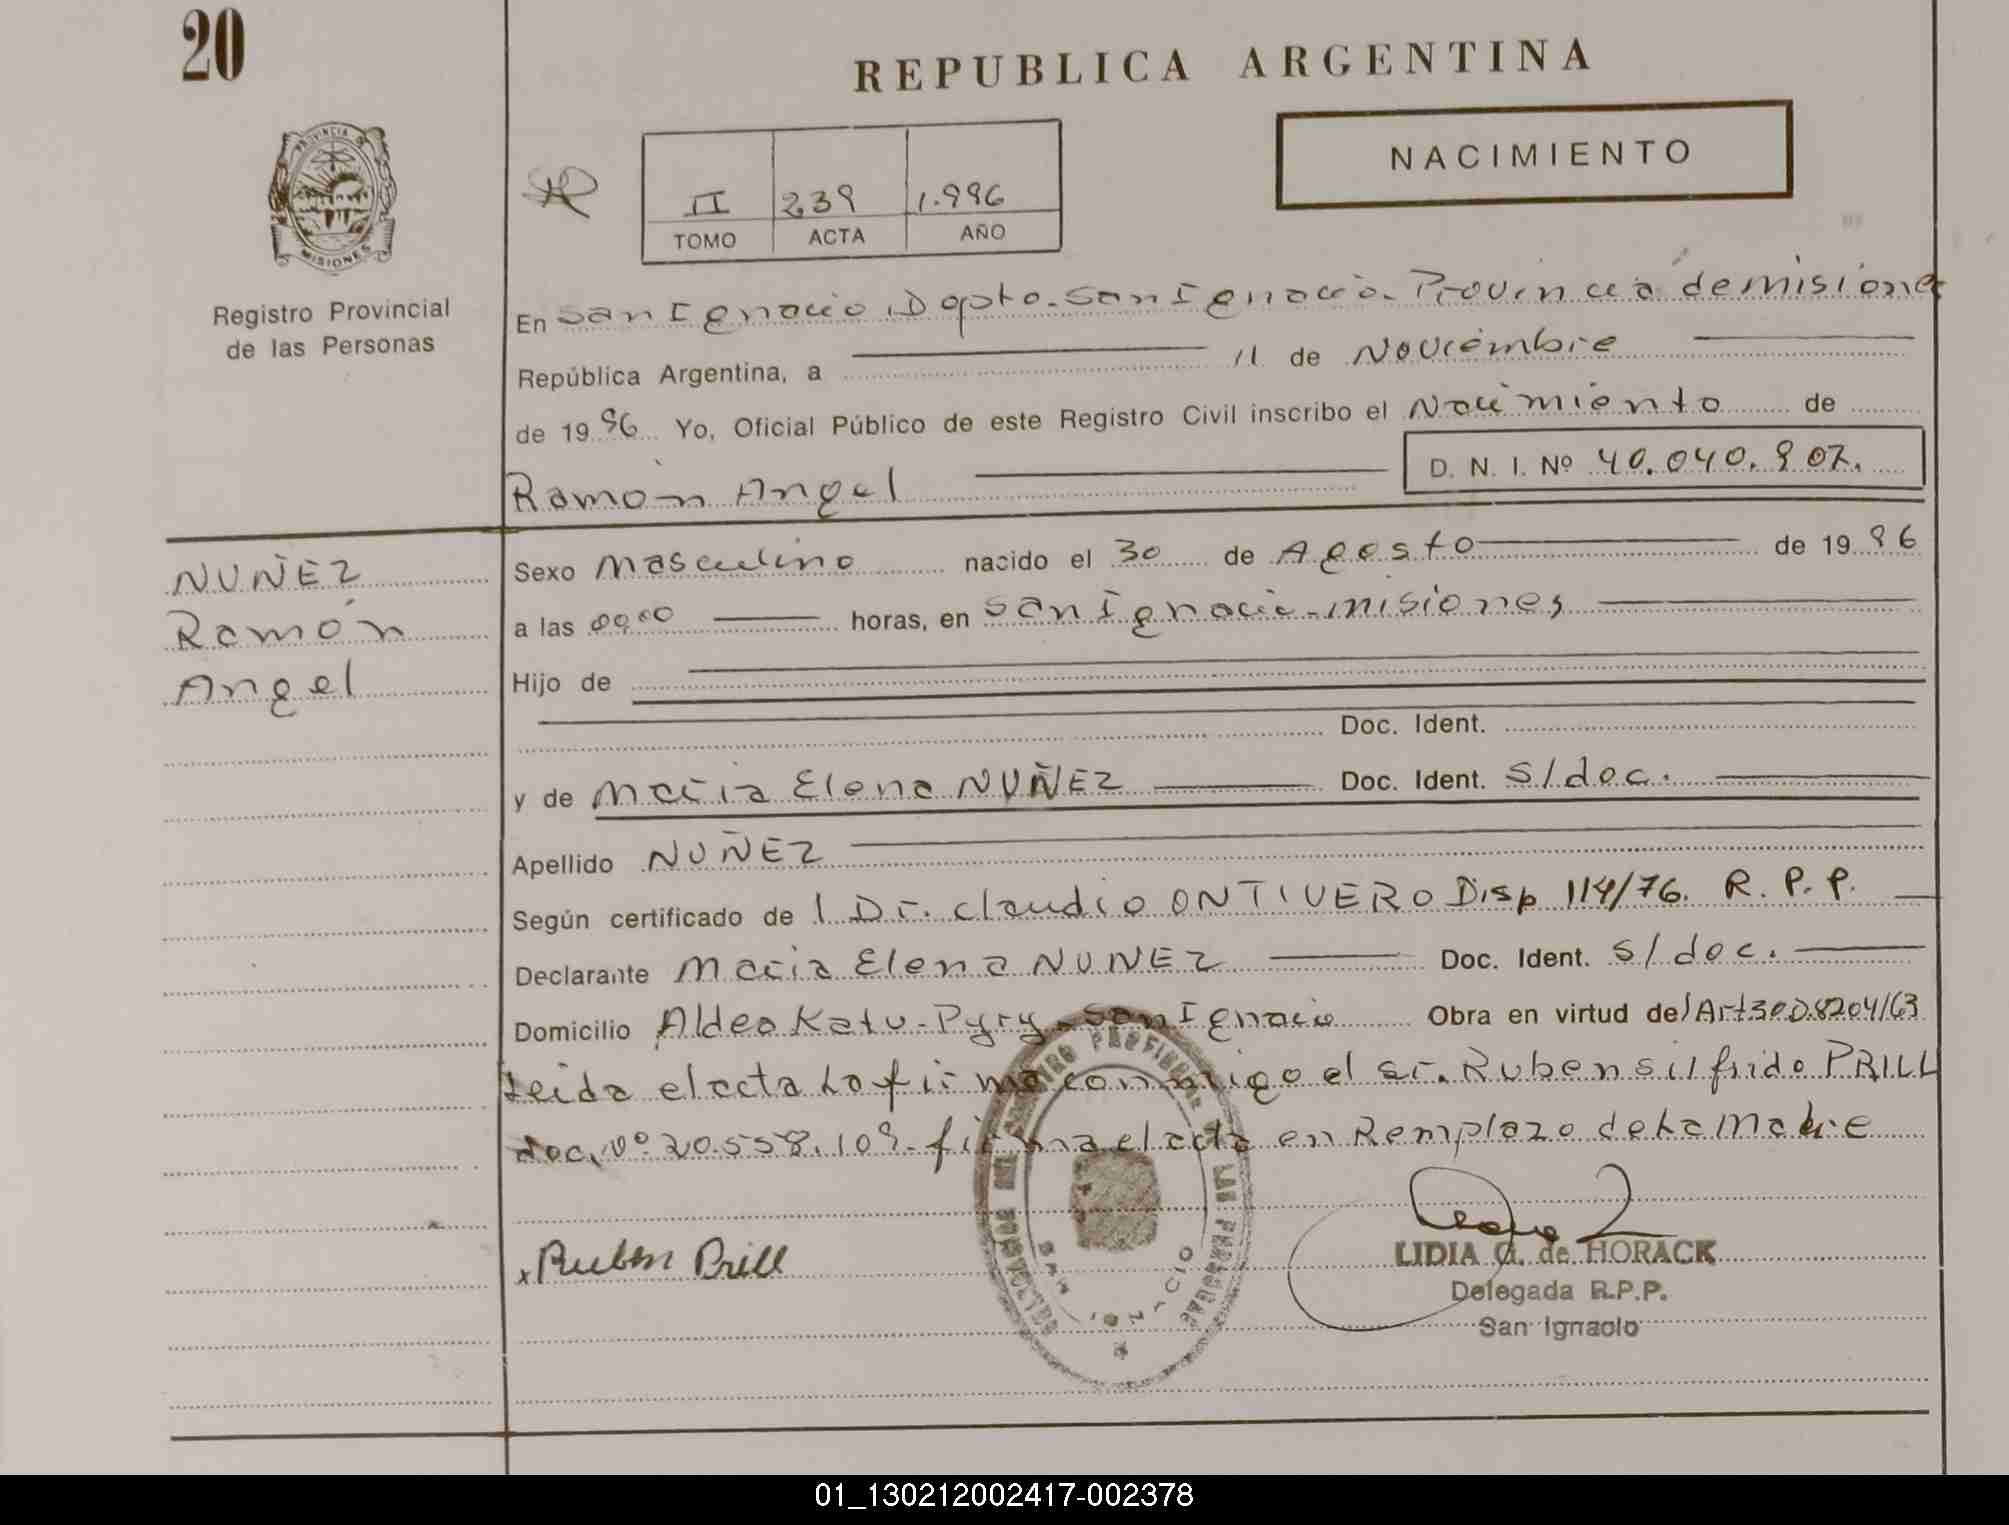 20
REPUBLICA ARGENTINA
NACIMIENTO
II 239 1.996
TOMO ACTA AÑO
PROVINCIA DE MISIONES
Registro Provincial
de las Personas
En San Ignacio, Dpto. San Ignacio. Provincia de misiones
República Argentina, a 11 de Noviembre
de 1996 Yo, Oficial Público de este Registro Civil inscribo el Nacimiento de
Ramón Angel D. N. I. Nº 40.040.907.
NUÑEZ
Ramón
Angel
Sexo Masculino nacido el 30 de Agosto de 1996
a las horas, en San Ignacio-misiones
Hijo de
Doc. Ident.
y de Maria Elena NUÑEZ Doc. Ident. S/doc.
Apellido NUÑEZ
Según certificado de l Dr. Claudio ONTIVERO Disp 114/76. R. P. P.
Declarante Maria Elena NUNEZ Doc. Ident. s/doc.
Domicilio Aldea Katu-Pyry-San Ignacio Obra en virtud del Art 30 D.8204/63
Leida el acta La firma conmigo el sr. Ruben silfrido PRILL
doc. Nº 20.558.109. firma el acta en Remplazo de La Madre
REGISTRO PROVINCIAL DE LAS PERSONAS
SAN IGNACIO
Ruben Prill
LIDIA G. de HORACK
Delegada R.P.P.
San Ignacio
01_130212002417-002378